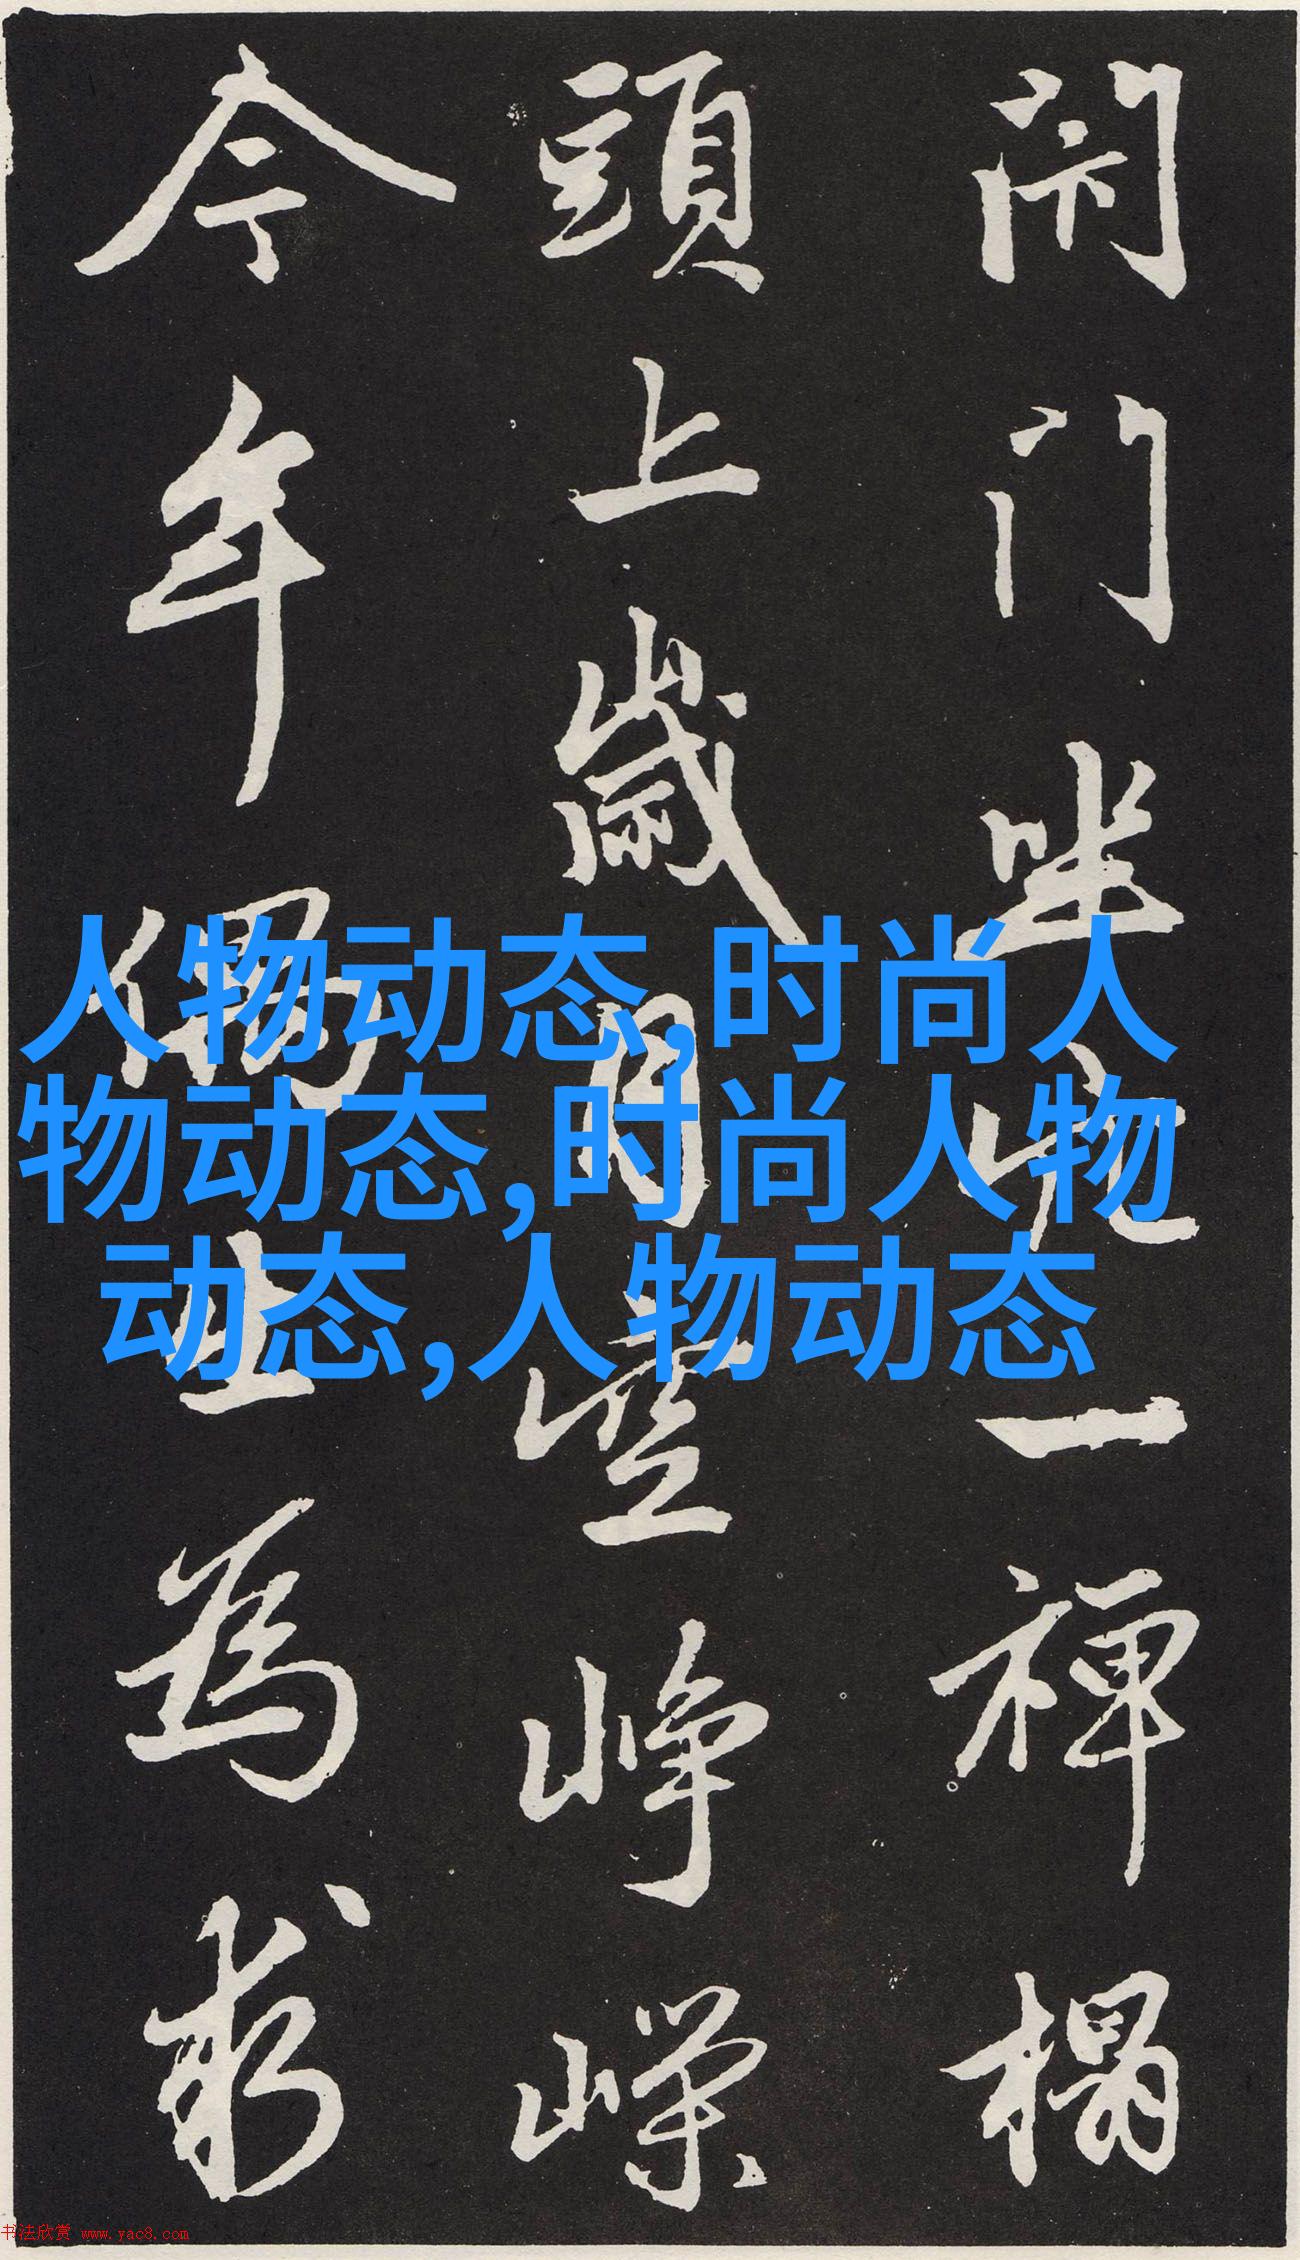 閉門坐穴一禪榻
頭上歲月空崢嶸
今年偶出為求
人物动态,时尚人
物动态,时尚人物
动态,人物动态
书法欣赏 www.yac8.com